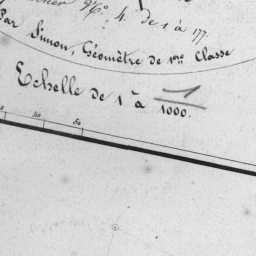 N.º 4. de 1 à 177.
Par Simon, Géomètre de 1ère Classe
Echelle de 1 à 1/1000.
50